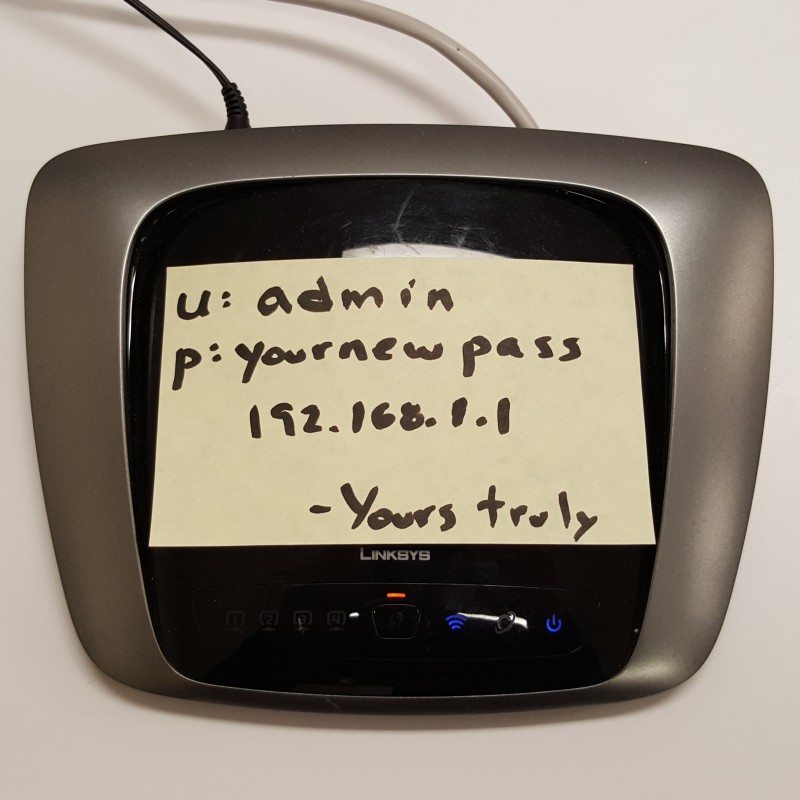 u: admin
p: yournewpass
192.168.1.1
-Yours truly
LINKSYS
1 2 3 4